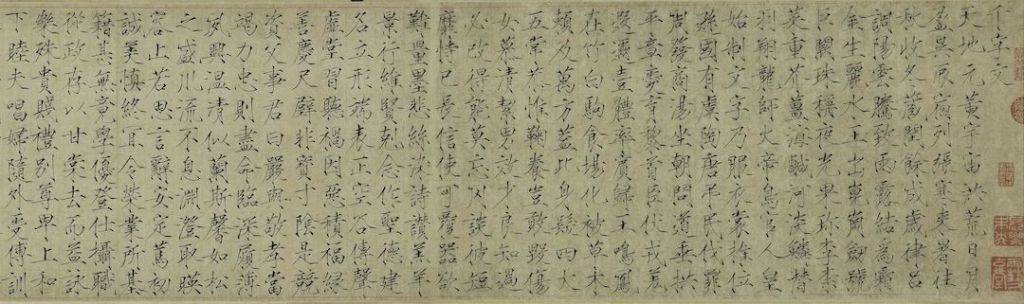 千字文
天地元黃宇宙洪荒日月
盈昃辰宿列張寒來暑往
秋收冬藏閏餘成歲律呂
調陽雲騰致雨露結為霜
金生麗水玉出崑崗劍號
巨闕珠稱夜光果珍李柰
菜重芥薑海鹹河淡鱗潛
羽翔龍師火帝鳥官人皇
始制文字乃服衣裳推位
遜國有虞陶唐弔民伐罪
周發商湯坐朝問道垂拱
平章愛育黎首臣伏戎羌
遐邇壹體率賓歸王鳴鳳
在竹白駒食場化被草木
賴及萬方蓋此身髮四大
五常恭惟鞠養豈敢毀傷
女慕清潔男效才良知過
必改得能莫忘罔談彼短
靡恃己長信使可覆器欲
難量墨悲絲染詩讚羔羊
景行維賢剋念作聖德建
名立形端表正空谷傳聲
虛堂習聽禍因惡積福緣
善慶尺璧非寶寸陰是競
資父事君曰嚴與敬孝當
竭力忠則盡命臨深履薄
夙興溫凊似蘭斯馨如松
之盛川流不息淵澄取暎
容止若思言辭安定篤初
誠美慎終宜令榮業所基
籍甚無竟學優登仕攝職
從政存以甘棠去而益詠
樂殊貴賤禮別尊卑上和
下睦夫唱婦隨外受傅訓